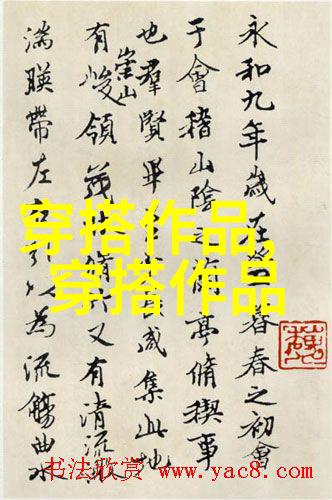 永和九年歲在暮春之初會
于會稽山陰之蘭亭脩稧事
也羣賢畢咸集此地
有崇山峻領茂林脩又有清流激
湍暎帶左引以為流觴曲水
穿搭作品,
穿搭作品
书法欣赏 www.yac8.com